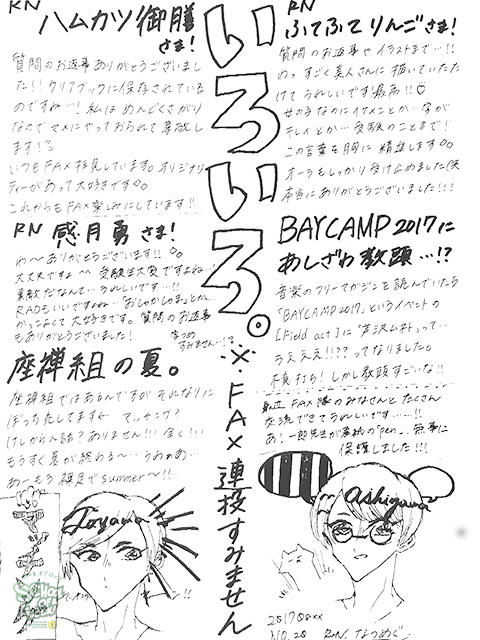 RN
ハムカツ御膳
さま!
質問のお返事ありがとうございまし
た!! クリアブックに保存されている
のですね…! 私はめんどくさがり
なのでマメにやっておられて尊敬し
ます!
いつもFAX拝見しています。オリジナリ
ティーがあって大好きです
これからもFAX楽しみにしています!!
RN 感月勇さま!
わ〜ありがとうございます!!
大丈夫ですよ^^ 受験生大変ですよね…!
素敵だなんて…うれしいです…!!
RADもいいですよね…「おしゃかしゃま」とか、
かっこよくて大好きです。質問のお返事
もありがとうございました!
座禅組の夏。
座禅組ではあるんですが それなりに
ぼっちたしてます
けしからん話? ありません!!! 全く!!!
もうすぐ夏が終わる〜 うわぁぁ…
あーもう 裸足でsummer〜!!
Toyama
いろいろ。
※・FAX連投すみません
RN
ふてふてりんごさま!
質問のお返事やイラストまで…!!
わ、すごく美人さんに描いていただ
けてうれしいです!最高!!
女の子なのにイケメンとか…字が
キレイとか…受験のことまで!
この言葉を胸に 精進します
オーラもしっかり受け止めました(笑
本当にありがとうございました!!!
BAYCAMP 2017に
あしざわ教頭…!?
音楽のフリーマガジンを読んでいたら
「BAYCAMP 2017」というイベントの
[Field act]に「芦沢ムネト」って…
うえええ!!??ってなりました。
不意打ち! しかし教頭すごいな!!
最近 FAX隊のみなさんと たくさん
交流できてうれしいです……!!
保護しました!!!
ashizawa
201708××
NO.20 RN.なつめぐ